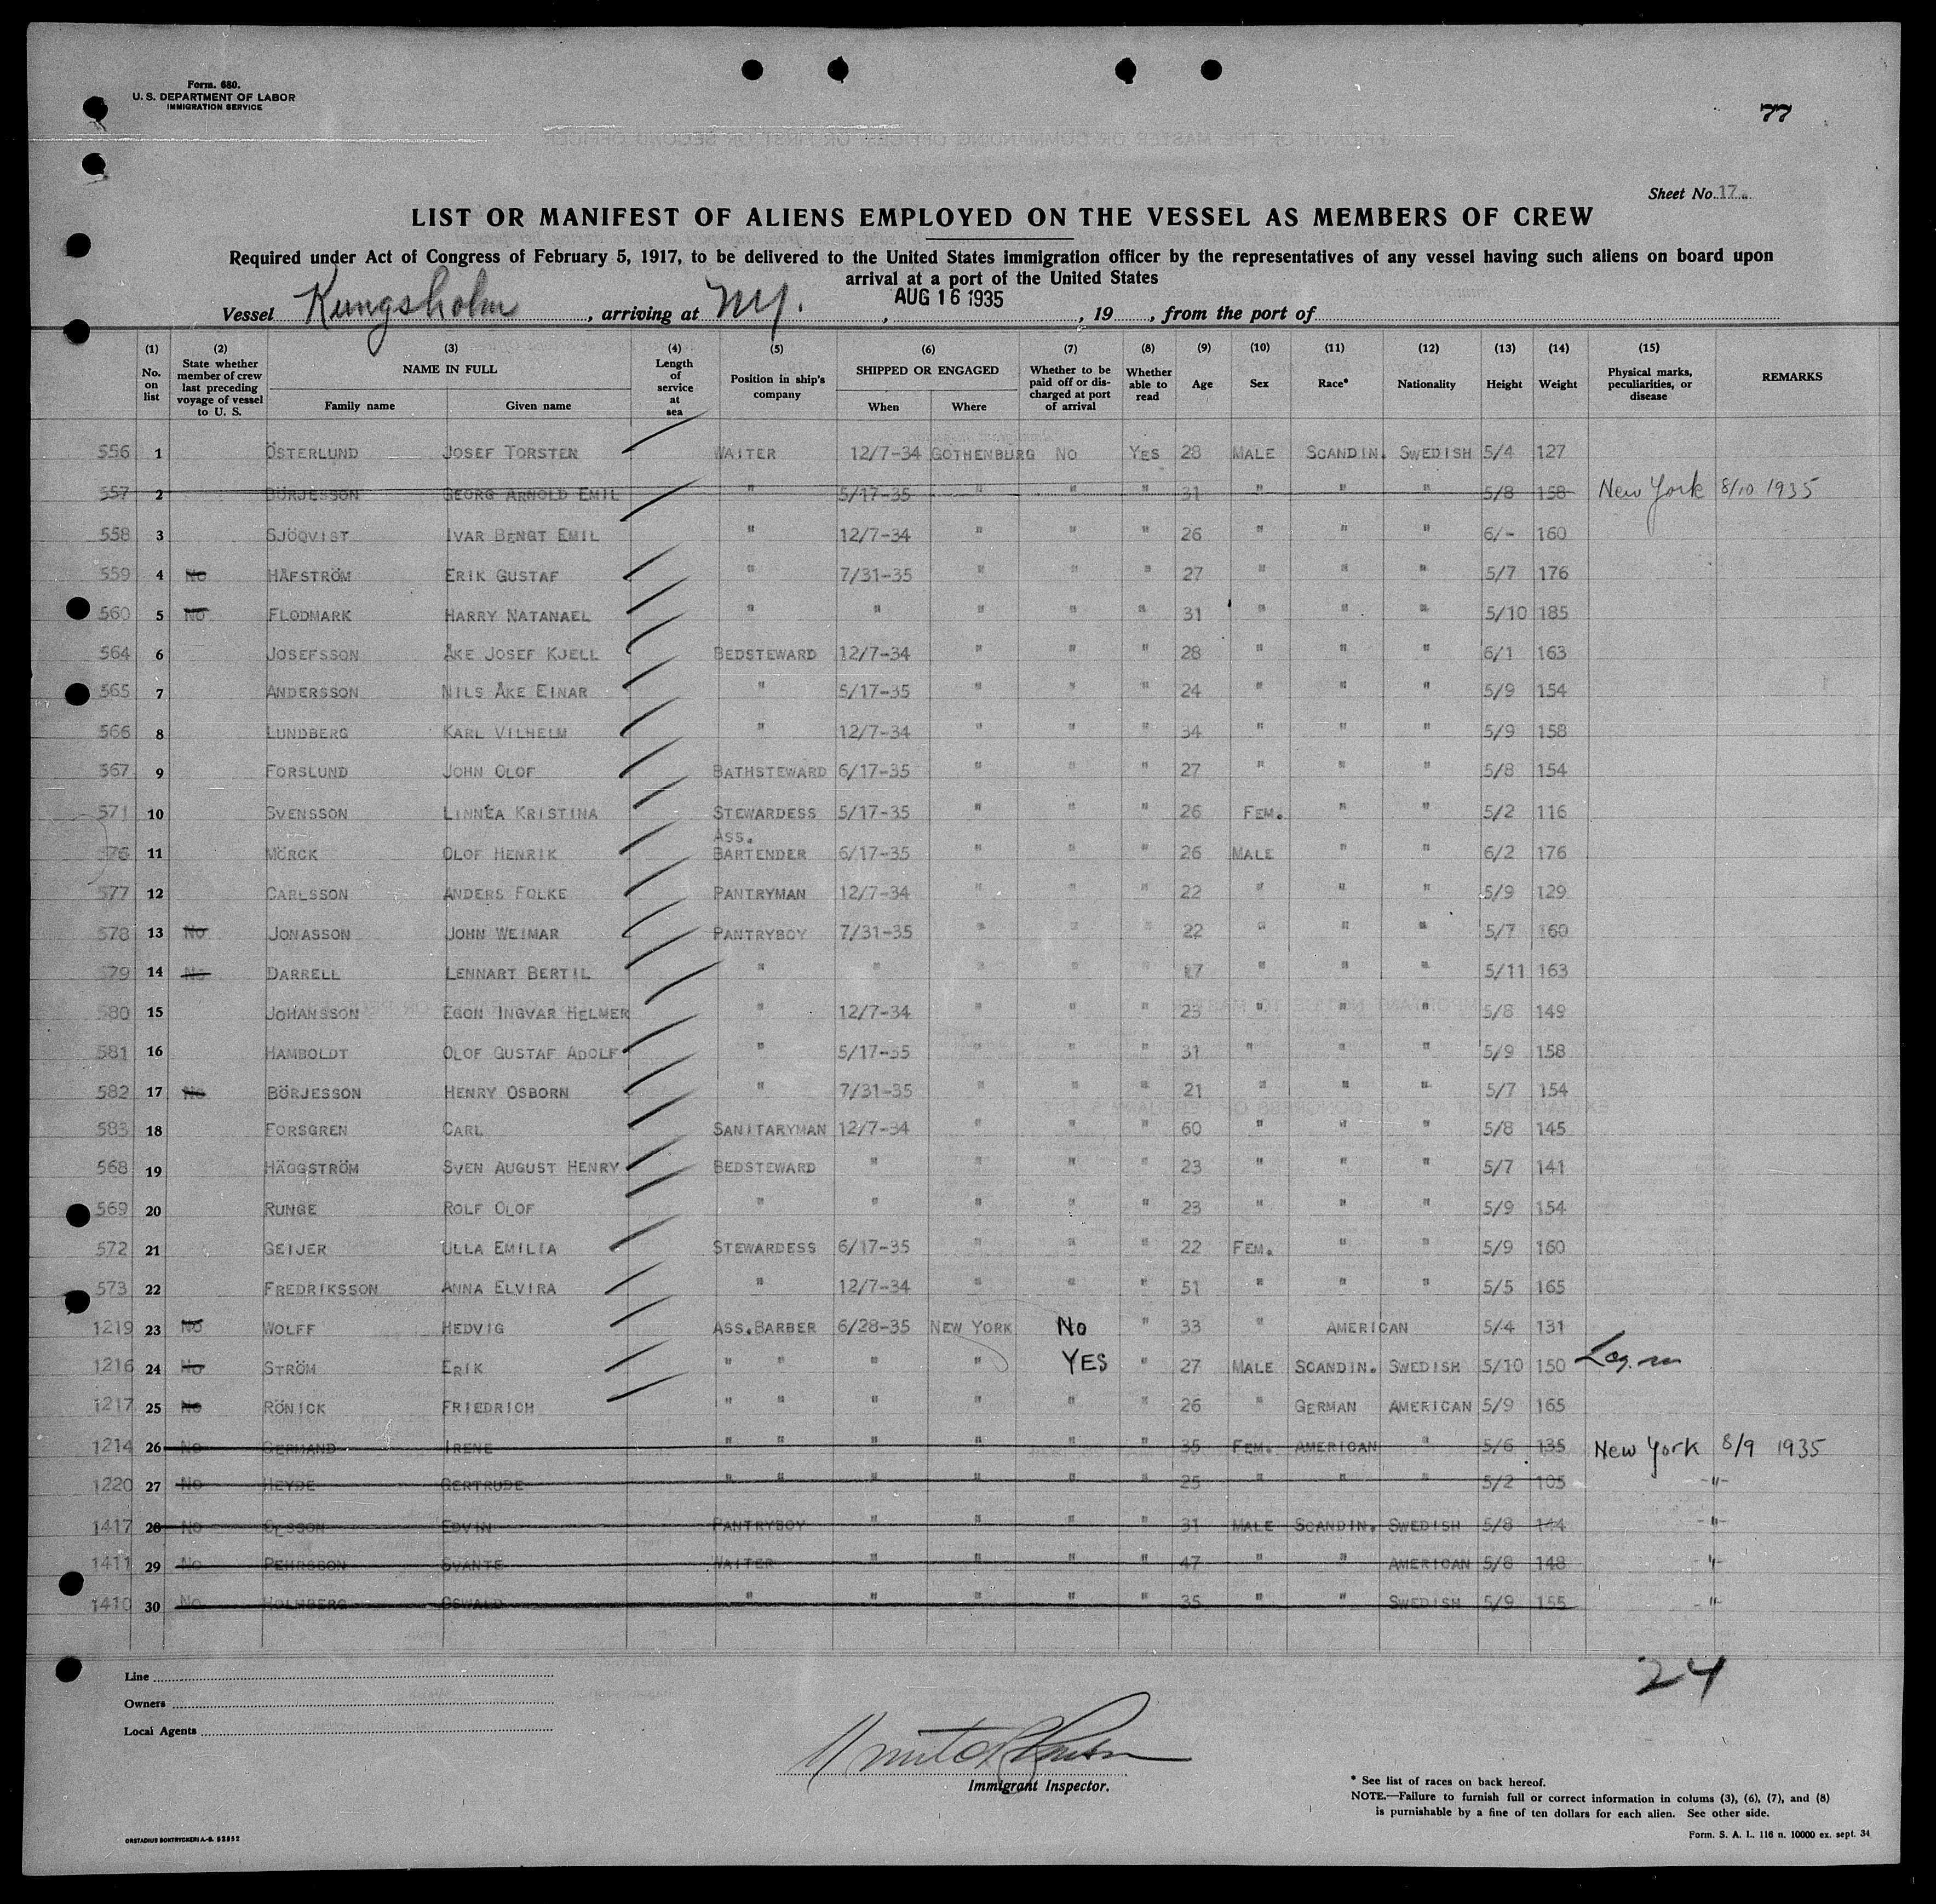 Form. 680.
U. S. DEPARTMENT OF LABOR
IMMIGRATION SERVICE
77
Sheet No. 17
LIST OR MANIFEST OF ALIENS EMPLOYED ON THE VESSEL AS MEMBERS OF CREW
Required under Act of Congress of February 5, 1917, to be delivered to the United States immigration officer by the representatives of any vessel having such aliens on board upon
arrival at a port of the United States
Vessel Kungsholm, arriving at NY., AUG 16 1935, 19 , from the port of
(1) No. on list (2) State whether member of crew last preceding voyage of vessel to U. S. (3) NAME IN FULL Family name Given name (4) Length of service at sea (5) Position in ship's company (6) SHIPPED OR ENGAGED When Where (7) Whether to be paid off or discharged at port of arrival (8) Whether able to read (9) Age (10) Sex (11) Race* (12) Nationality (13) Height (14) Weight (15) Physical marks, peculiarities, or disease REMARKS
556 1 ÖSTERLUND JOSEF TORSTEN WAITER 12/7-34 GOTHENBURG NO YES 28 MALE SCANDIN. SWEDISH 5/4 127
557 2 BÖRJESSON GEORG ARNOLD EMIL " 5/17-35 " " " 31 " " " 5/8 158 New York 8/10 1935
558 3 SJÖQVIST IVAR BENGT EMIL " 12/7-34 " " " 26 " " " 6/- 160
559 4 NO HÅFSTRÖM ERIK GUSTAF " 7/31-35 " " " 27 " " " 5/7 176
560 5 NO FLODMARK HARRY NATANAEL " " " " " 31 " " " 5/10 185
564 6 JOSEFSSON ÅKE JOSEF KJELL BEDSTEWARD 12/7-34 " " " 28 " " " 6/1 163
565 7 ANDERSSON NILS ÅKE EINAR " 5/17-35 " " " 24 " " " 5/9 154
566 8 LUNDBERG KARL VILHELM " 12/7-34 " " " 34 " " " 5/9 158
567 9 FORSLUND JOHN OLOF BATHSTEWARD 6/17-35 " " " 27 " " " 5/8 154
571 10 SVENSSON LINNÉA KRISTINA STEWARDESS 5/17-35 " " " 26 FEM. " " 5/2 116
576 11 MÖRCK OLOF HENRIK ASS. BARTENDER 6/17-35 " " " 26 MALE " " 6/2 176
577 12 CARLSSON ANDERS FOLKE PANTRYMAN 12/7-34 " " " 22 " " " 5/9 129
578 13 NO JONASSON JOHN WEIMAR PANTRYBOY 7/31-35 " " " 22 " " " 5/7 160
579 14 NO DARRELL LENNART BERTIL " " " " " 17 " " " 5/11 163
580 15 JOHANSSON EGON INGVAR HELMER " 12/7-34 " " " 23 " " " 5/8 149
581 16 HAMBOLDT OLOF GUSTAF ADOLF " 5/17-35 " " " 31 " " " 5/9 158
582 17 NO BÖRJESSON HENRY OSBORN " 7/31-35 " " " 21 " " " 5/7 154
583 18 FORSGREN CARL SANITARYMAN 12/7-34 " " " 60 " " " 5/8 145
568 19 HÄGGSTRÖM SVEN AUGUST HENRY BEDSTEWARD " " " " 23 " " " 5/7 141
569 20 RUNGE ROLF OLOF " " " " " 23 " " " 5/9 154
572 21 GEIJER ULLA EMILIA STEWARDESS 6/17-35 " " " 22 FEM. " " 5/9 160
573 22 FREDRIKSSON ANNA ELVIRA " 12/7-34 " " " 51 " " " 5/5 165
1219 23 NO WOLFF HEDVIG ASS.BARBER 6/28-35 NEW YORK No " 33 " AMERICAN 5/4 131
1216 24 NO STRÖM ERIK " " " " YES " 27 MALE SCANDIN. SWEDISH 5/10 150
1217 25 NO RÖNICK FRIEDRICH " " " " " " 26 " GERMAN AMERICAN 5/9 165
1214 26 NO GERMAND IRENE " " " " " " 35 FEM. AMERICAN " 5/6 135 New York 8/9 1935
1220 27 NO HEYDE GERTRUDE " " " " " " 25 " " " 5/2 105 -"-
1417 28 NO OLSSON EDVIN PANTRYBOY " " " " 31 MALE SCANDIN. SWEDISH 5/8 144 -"-
1411 29 NO PEHRSSON SVANTE WAITER " " " " 47 " " AMERICAN 5/8 148 -"-
1410 30 NO HOLMBERG OSWALD " " " " " 35 " " SWEDISH 5/9 155 -"-
24
Line
Owners
Local Agents
Immigrant Inspector.
* See list of races on back hereof.
NOTE.—Failure to furnish full or correct information in colums (3), (6), (7), and (8)
is punishable by a fine of ten dollars for each alien. See other side.
ORSTADIUS BOKTRYCKERI A.-B. 52852
Form. S. A. L. 116 n. 10000 ex. sept. 34